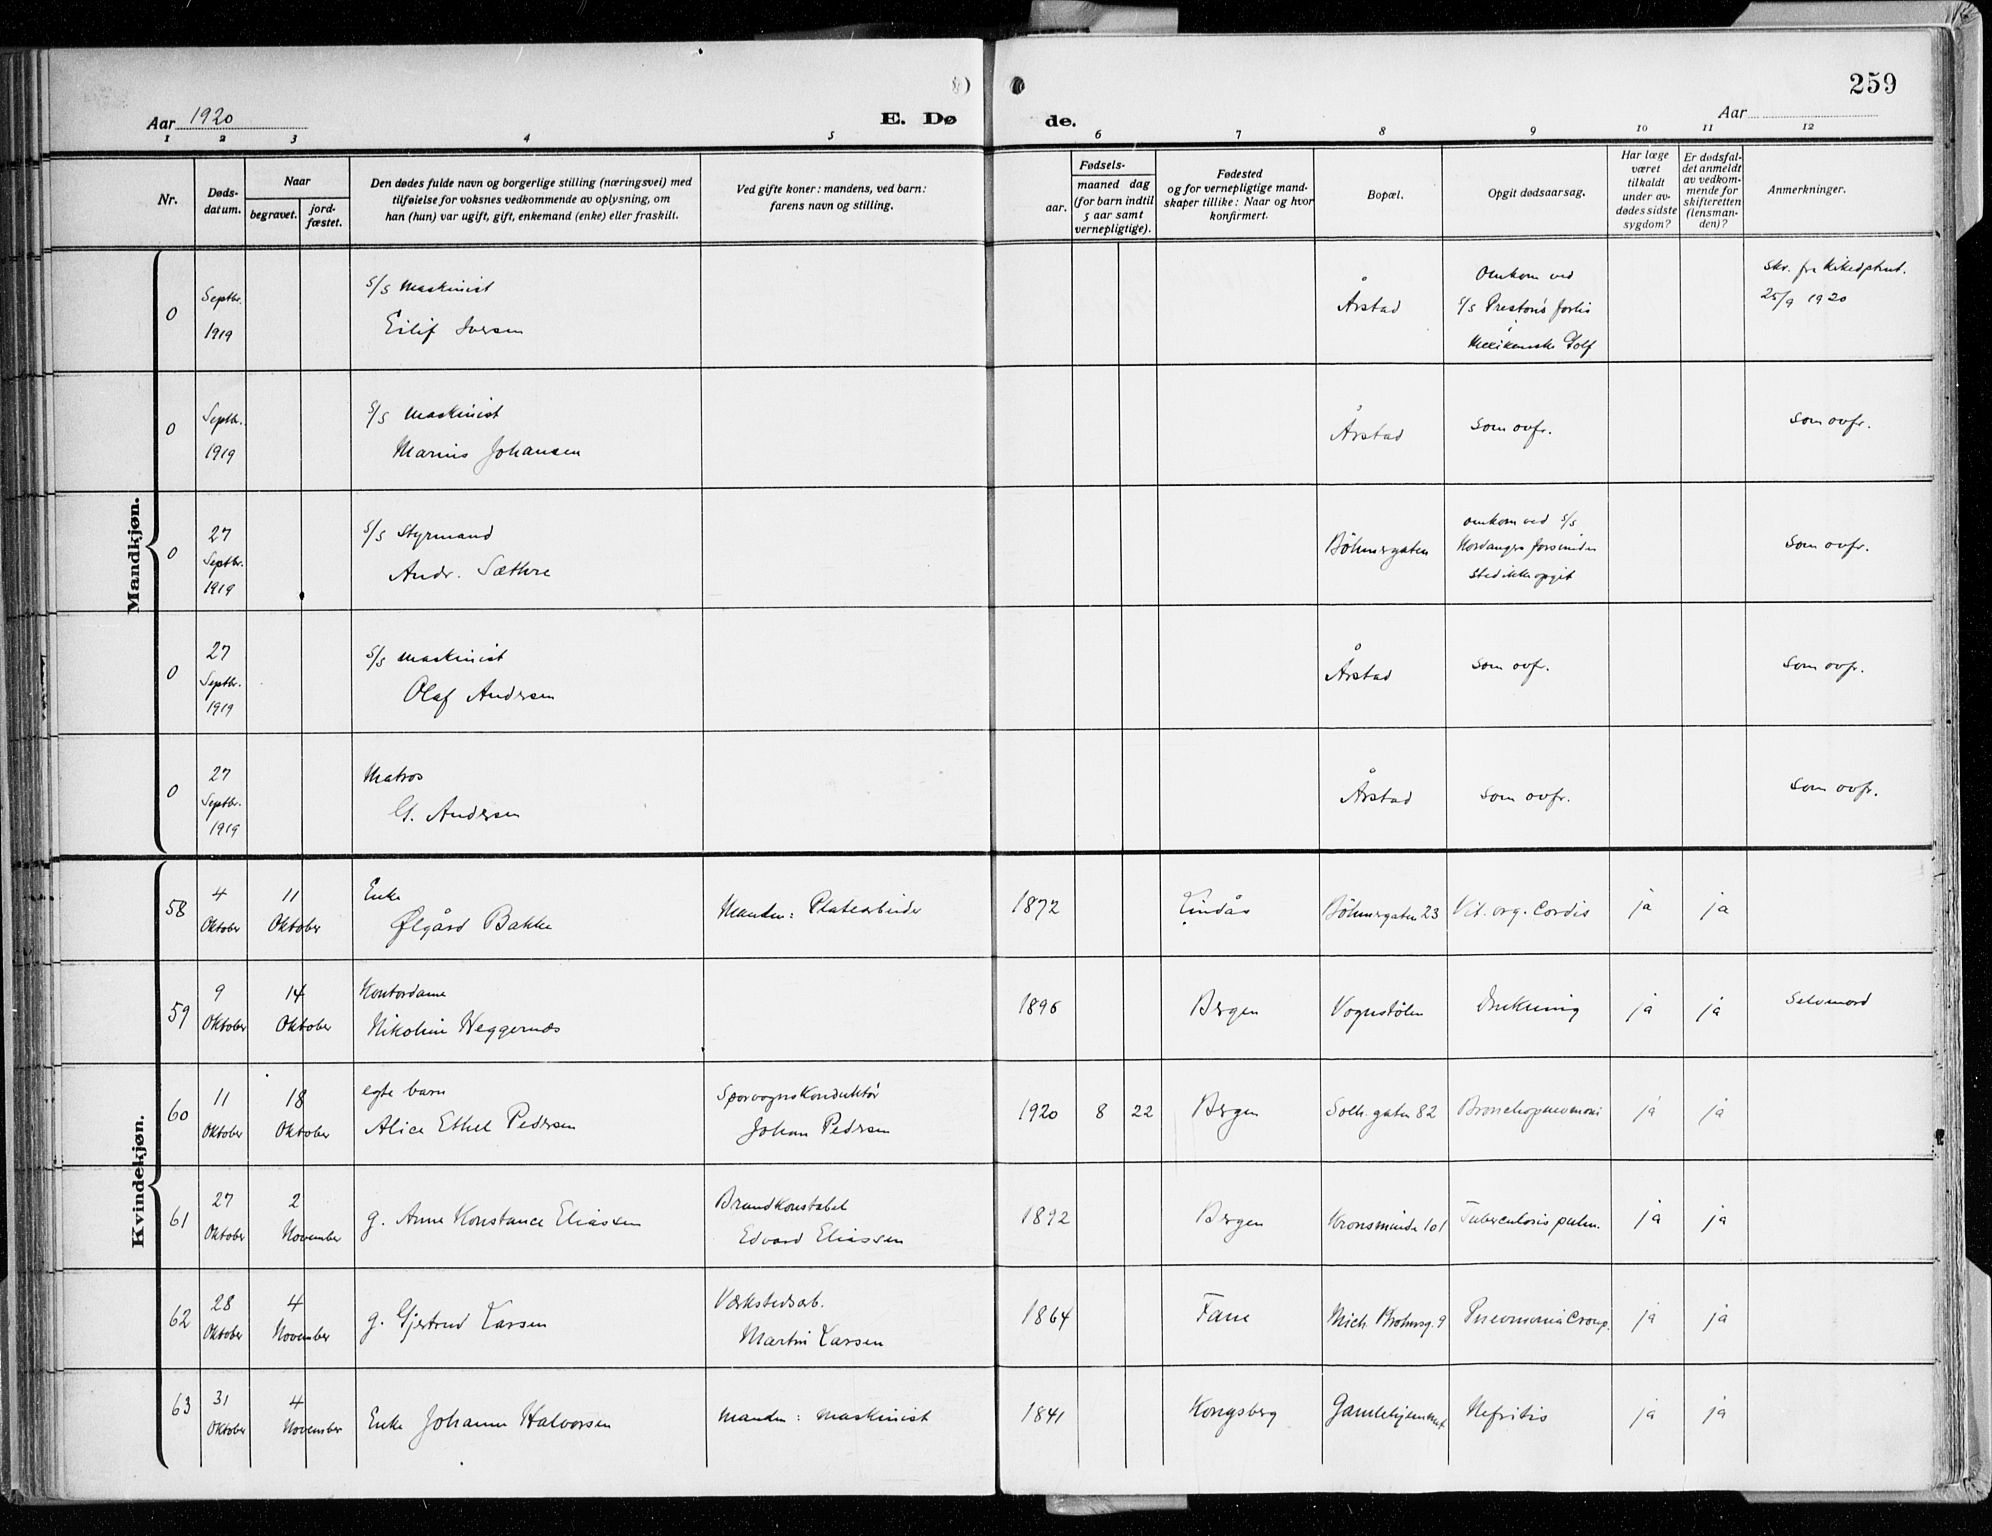 259
Aar 1920
E. Dø
de.
Aar
1 2 3 4 5 6 7 8 9 10 11 12
Nr.
Døds-
datum.
Naar
begravet.
jord-
fæstet.
Den dødes fulde navn og borgerlige stilling (næringsvei) med
tilføielse for voksnes vedkommende av oplysning, om
han (hun) var ugift, gift, enkemand (enke) eller fraskilt.
Ved gifte koner: mandens, ved barn:
farens navn og stilling.
Fødsels-
aar.
maaned dag
(for barn indtil
5 aar samt
vernepligtige).
Fødested
og for vernepligtige mand-
skaper tillike: Naar og hvor
konfirmert.
Bopæl.
Opgit dødsaarsag.
Har læge
været
tilkaldt
under av-
dødes sidste
sygdom?
Er dødsfal-
det anmeldt
av vedkom-
mende for
skifteretten
(lensman-
den)?
Anmerkninger.
Mandkjøn.
0
Septbr.
1919
s/s Maskinist
Eilif Iversen
Årstad
Omkom ved
s/s Prestons forlis
i
Mexikanske Golf
Skr. fra
25/9 1920
0
Septbr.
1919
s/s Maskinist
Marius Johansen
Årstad
Som ovfr.
Som ovfr.
0
27
Septbr.
1919
s/s Styrmand
Andr. Sæthre
Böhmergaten
Omkom ved s/s
Hordangers forsvinden
Sted ikke opgit
Som ovfr.
0
27
Septbr.
1919
s/s Maskinist
Olaf Andersen
Årstad
Som ovfr.
Som ovfr.
0
27
Septbr.
1919
Matros
G. Andersen
Årstad
Som ovfr.
Som ovfr.
Kvindekjøn.
58
4
Oktober
11
Oktober
Enke
Ølgård Bakke
Manden: Platearbeider
1872
Lindås
Böhmergaten 23
Vit. org. Cordis
ja
ja
59
9
Oktober
14
Oktober
Kontordame
Nikoline Heggernæs
1896
Bergen
Vognstølen
Drukning
ja
ja
Selvmord
60
11
Oktober
18
Oktober
egte barn
Alice Ethel Pedersen
Sporvognskonduktør
Johan Pedersen
1920 8 22
Bergen
Solh.gaten 82
Bronchopneumoni
ja
ja
61
27
Oktober
2
November
g. Anne Konstance Eliassen
Brandkonstabel
Edvard Eliassen
1892
Bergen
Kronsminde 101
Tuberculosis pulm.
ja
ja
62
28
Oktober
4
November
g. Gjertrud Larsen
Værkstedsarb.
Martin Larsen
1864
Fane
Mich. Krohnsg. 9
Pneumonia Croup.
ja
ja
63
31
Oktober
4
November
Enke Johanne Halvorsen
Manden: Maskinist
1841
Kongsberg
Gamlehjemmet
Nefritis
ja
ja